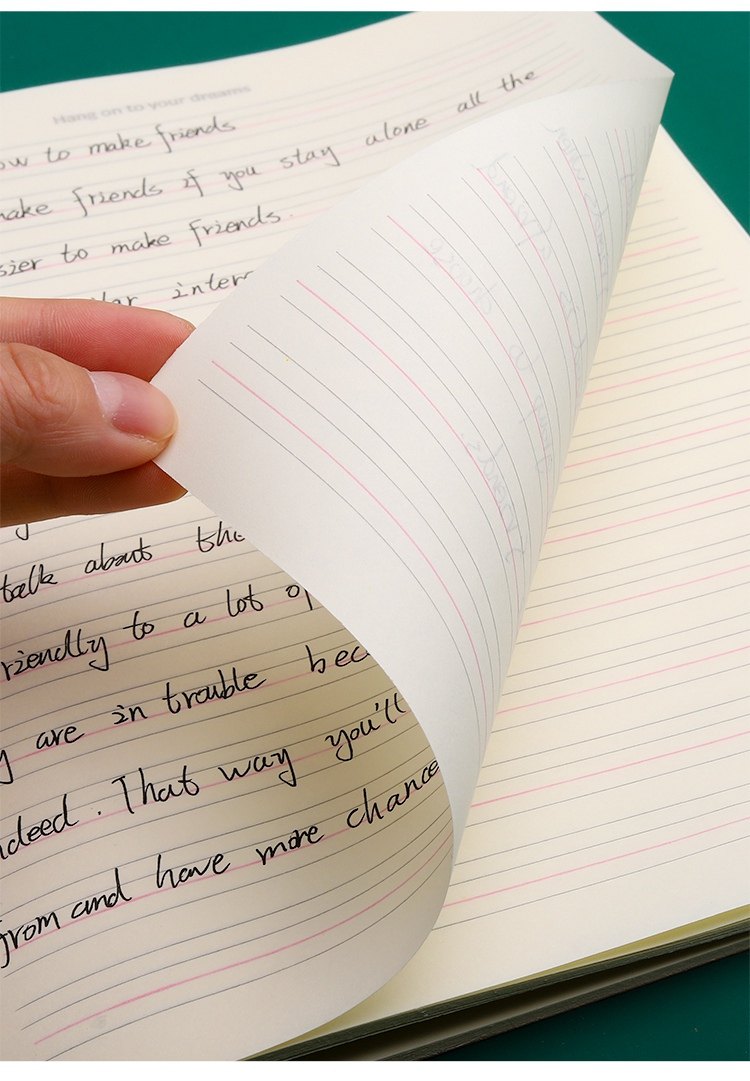 Hang on to your dreams
ow to make friends
make friends if you stay alone all the
sier to make friends.
lar inter
talk about the
riendly to a lot of
y are in trouble bec
ndeed. That way you'll
from and have more chance